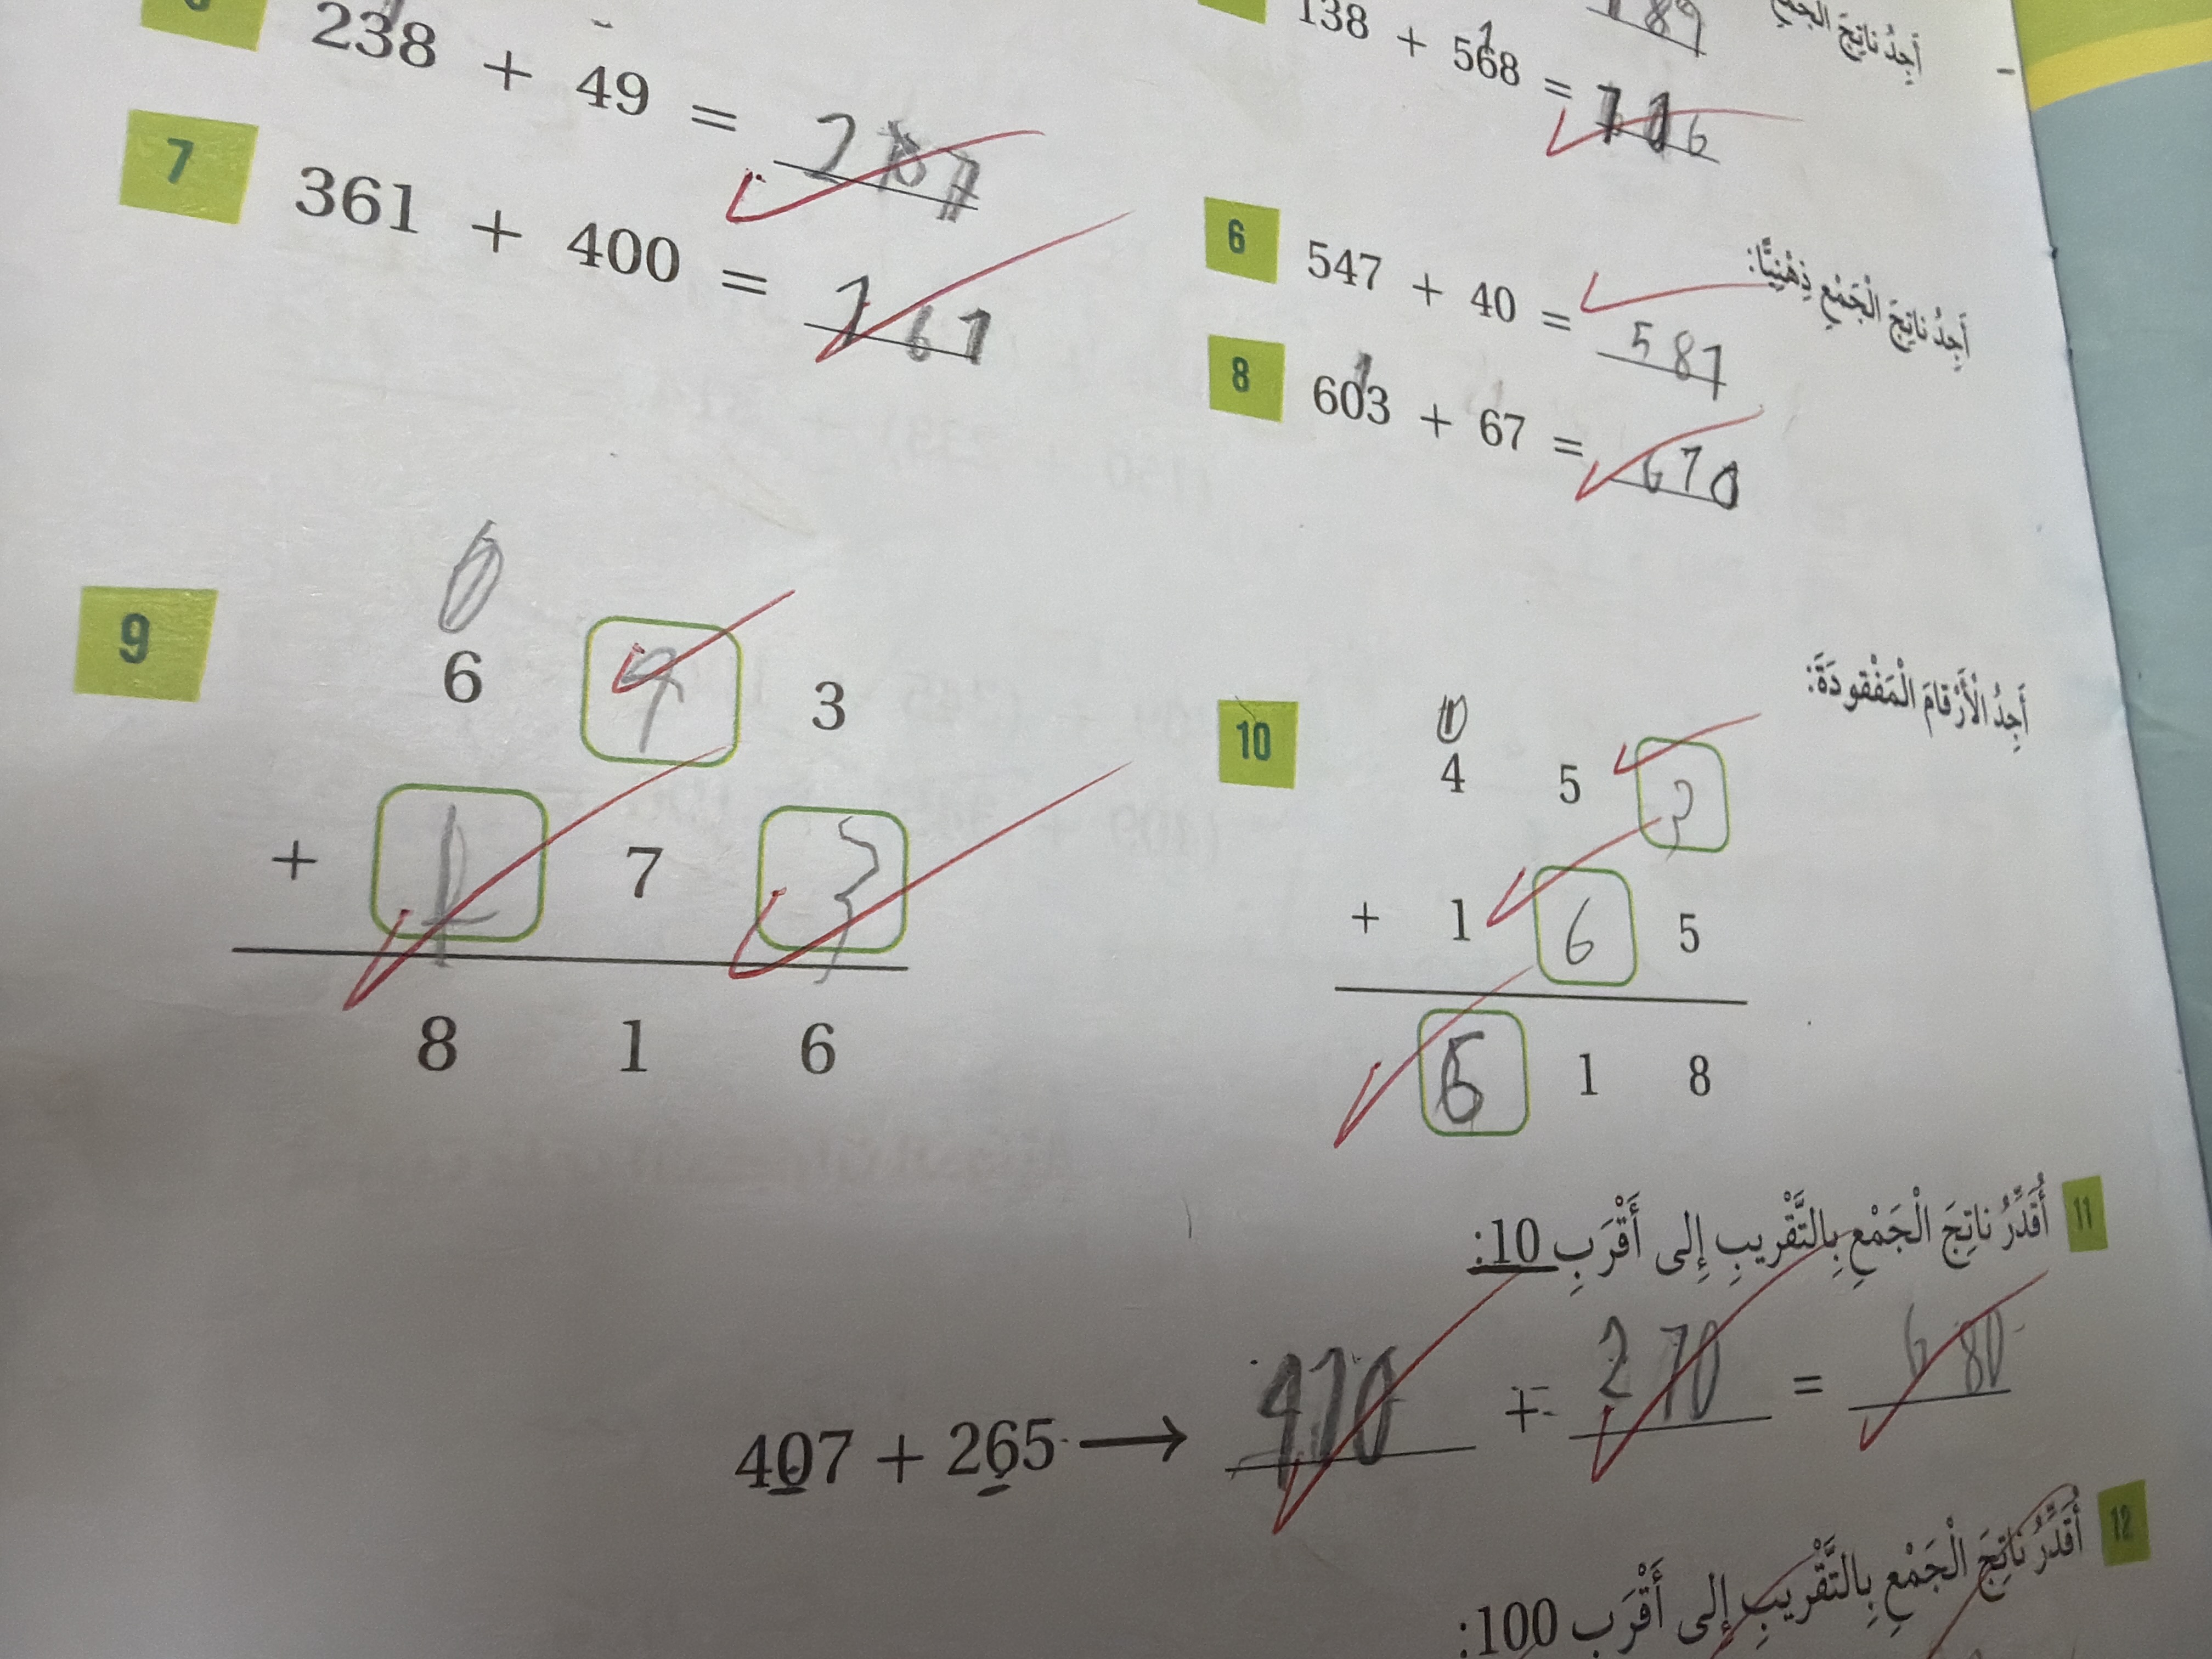 189
أَجِدُ ناتِجَ الْجَمْعِ
138 + 568 = 706
238 + 49 = 287
7 361 + 400 = 761
أَجِدُ ناتِجَ الْجَمْعِ ذِهْنِيًّا:
6 547 + 40 = 587
8 603 + 67 = 670
أَجِدُ الْأَرْقامَ الْمَفْقودَةَ:
9
6 9 3
+ 1 7 3
8 1 6
10
4 5 3
+ 1 6 5
6 1 8
11 أُقَدِّرُ ناتِجَ الْجَمْعِ بِالتَّقْريبِ إِلى أَقْرَبِ 10:
407 + 265 → 410 + 270 = 680
12 أُقَدِّرُ ناتِجَ الْجَمْعِ بِالتَّقْريبِ إِلى أَقْرَبِ 100: